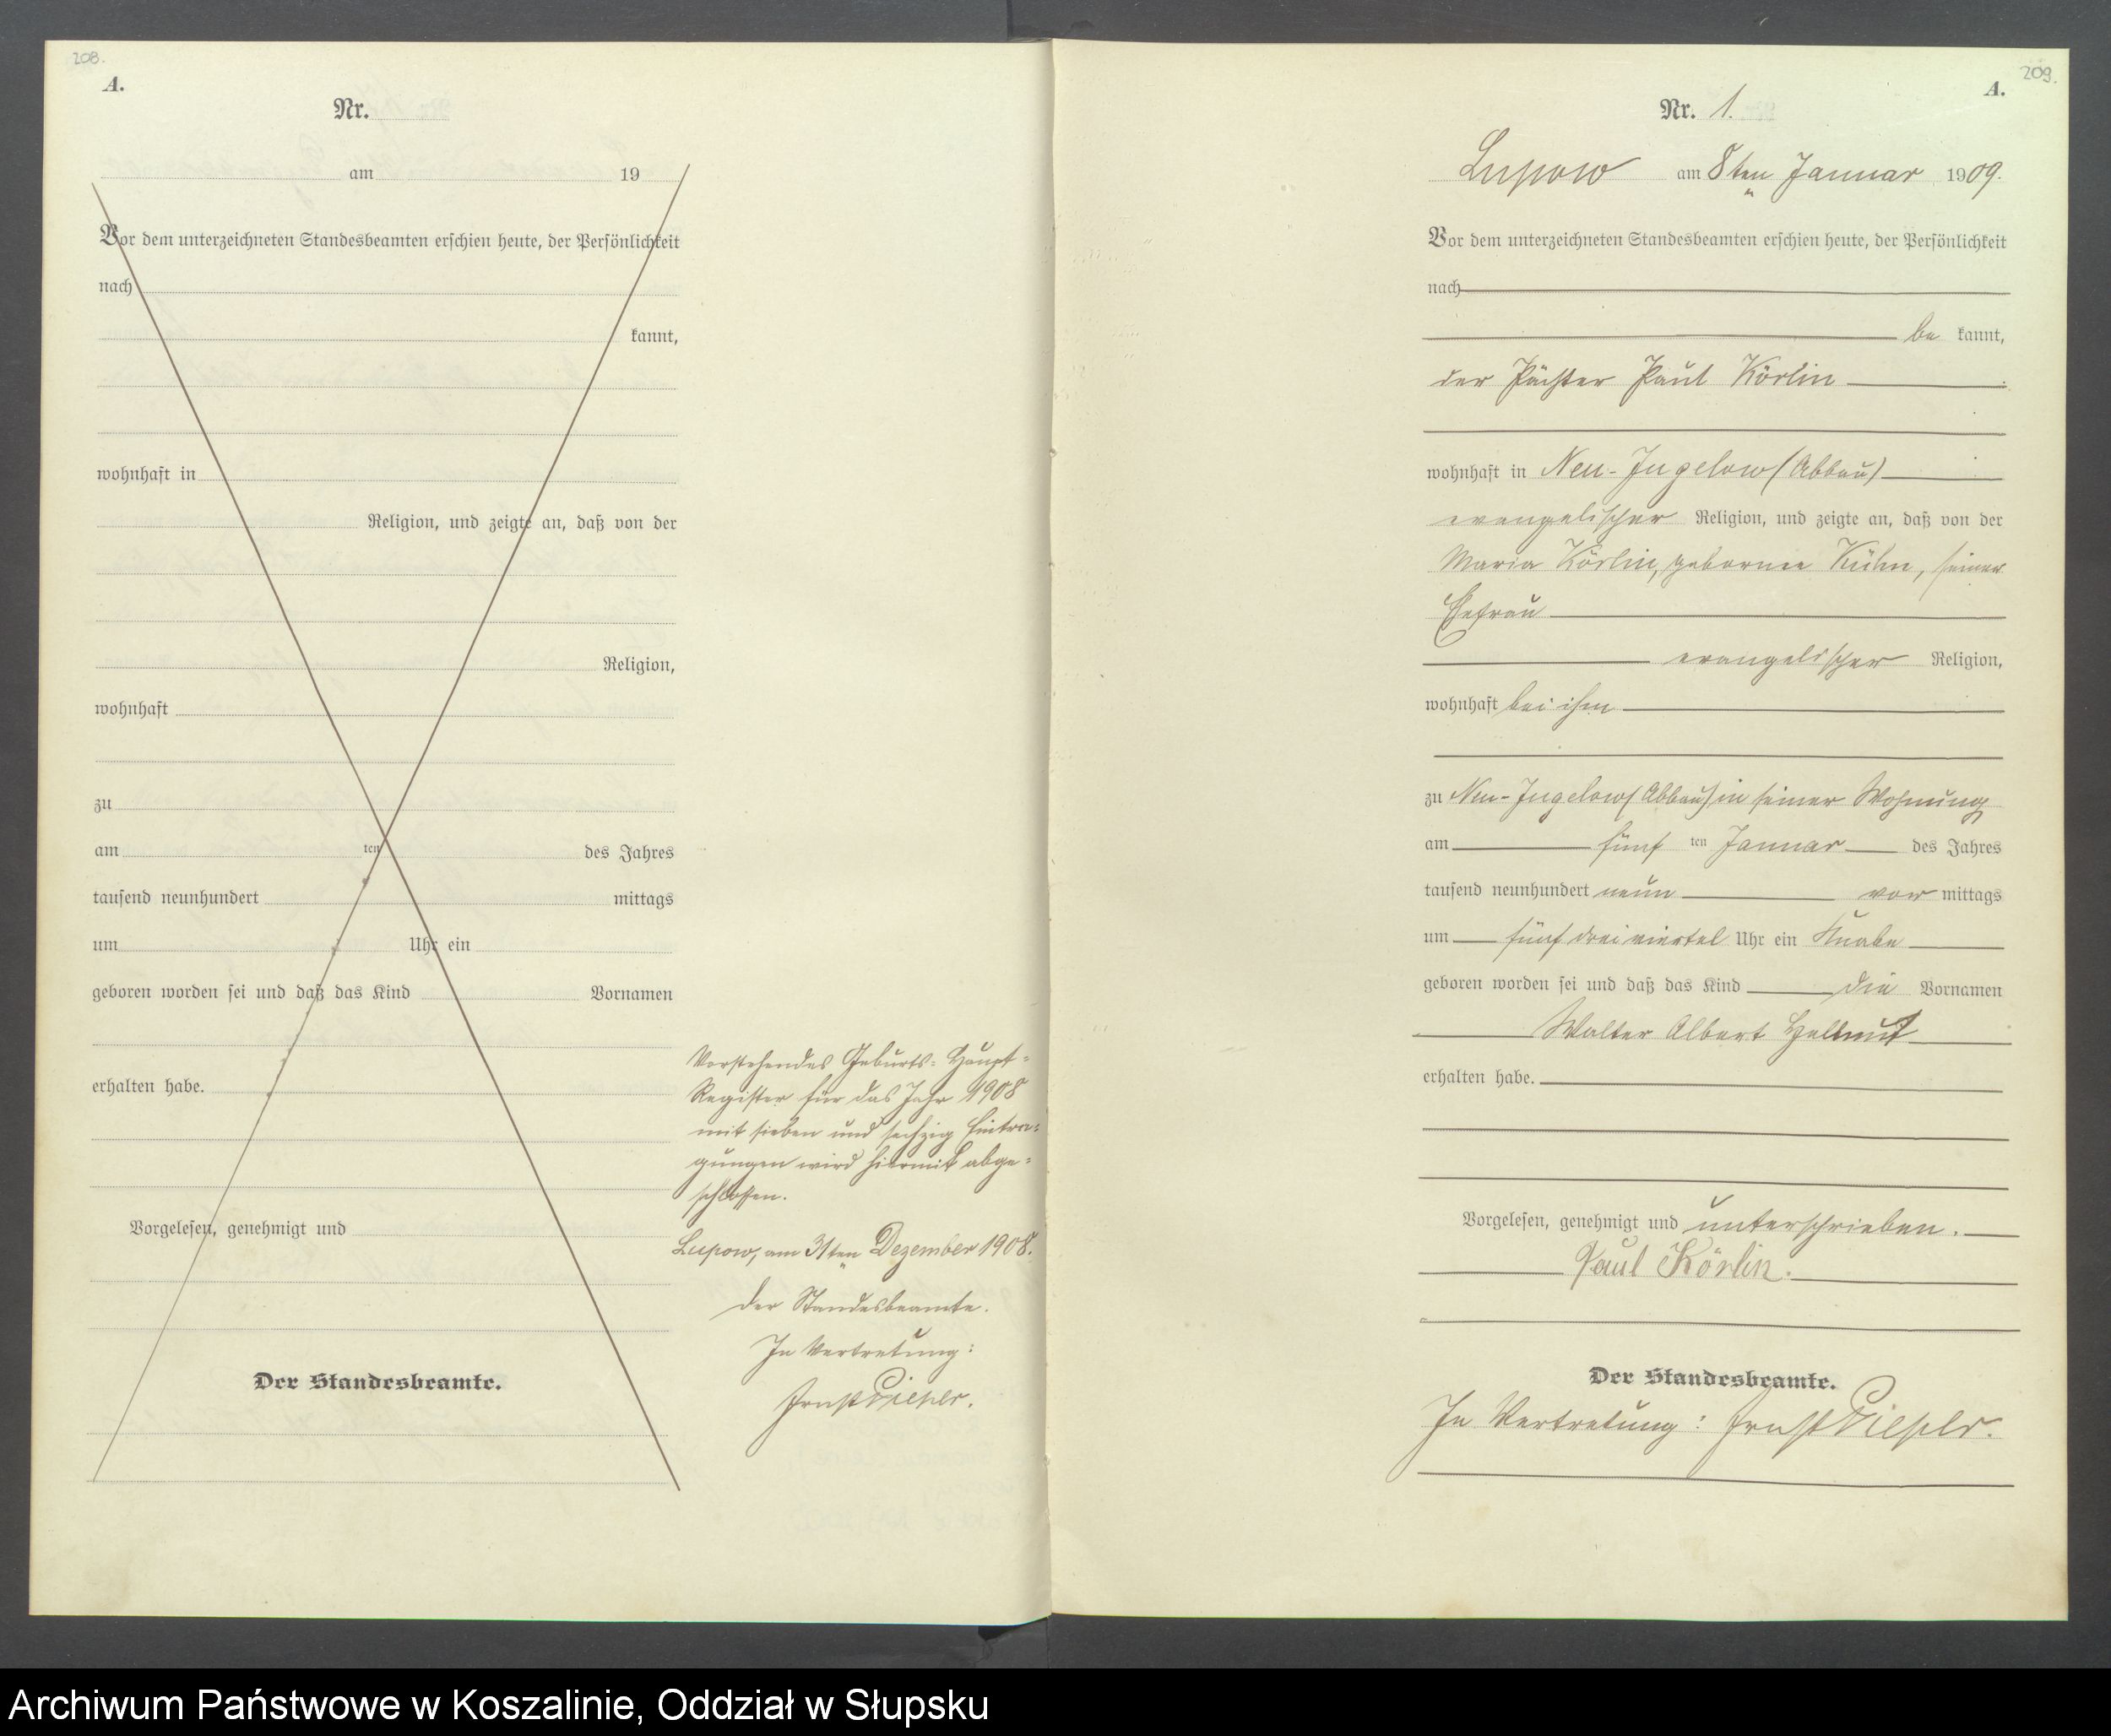 208.
A.
Nr.
am 19
Vor dem unterzeichneten Standesbeamten erschien heute, der Persönlichkeit
nach
kannt,
wohnhaft in
Religion, und zeigte an, daß von der
Religion,
wohnhaft
zu
am ten des Jahres
tausend neunhundert mittags
um Uhr ein
geboren worden sei und daß das Kind Vornamen
erhalten habe.
Vorgelesen, genehmigt und
Der Standesbeamte.
Vorstehendes Geburts-Haupt-
Register für das Jahr 1908
mit sieben und sechzig Eintra-
gungen wird hiermit abge-
schlossen.
Lupow, am 31ten Dezember 1908.
Der Standesbeamte.
In Vertretung:
Ernst Pieper.
209.
A.
Nr. 1.
Lupow am 8ten Januar 1909.
Vor dem unterzeichneten Standesbeamten erschien heute, der Persönlichkeit
nach
be kannt,
der Pächter Paul Körlin
wohnhaft in Neu-Jugelow (Abbau)
evangelischer Religion, und zeigte an, daß von der
Maria Körlin, geborene Kühn, seiner
Ehefrau
evangelischer Religion,
wohnhaft bei ihm
zu Neu-Jugelow (Abbau) in seiner Wohnung
am fünf ten Januar des Jahres
tausend neunhundert neun vor mittags
um fünf dreiviertel Uhr ein Knabe
geboren worden sei und daß das Kind die Vornamen
Walter Albert Hellmut
erhalten habe.
Vorgelesen, genehmigt und unterschrieben.
Paul Körlin.
Der Standesbeamte.
In Vertretung: Ernst Pieper.
Archiwum Państwowe w Koszalinie, Oddział w Słupsku